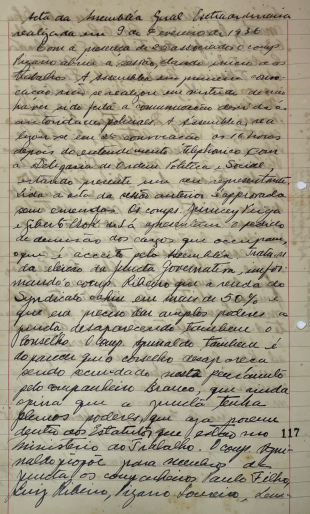 Acta da Assembléa Geral Extraordinaria
realizada em 9 de Fevereiro de 1936
Com a presença de associados o comp.
Pizarro abriu a sessão, dando inicio aos
trabalhos. A Assembléa em primeira convo-
cação não se realizou em virtude de não
haver sido feita a communicação devida á
autoridades policiaes. A Assembléa, rea
lizou-se em 2ª convocação as 16 horas
depois do entendimento telephonico com
a Delegacia de Ordem Politica e Social
estando presente um seu representante.
Lida a acta da sessão anterior é approvada
sem emendas. Os comps.
e Gilberto apresentam o pedido
de demissão dos cargos que occupavam,
o que é acceito pela Assembléa. Trata-se
da eleição da Junta Governativa, infor
mando o comp. Ribeiro que a renda do
Syndicato cahiu em mais de 50% e
que era preciso dar amplos poderes a
junta desaparecendo tambem o
Conselho. O comp. Grimaldo tambem é
do parecer que o conselho desapareça
sendo secundado neste pensamento
pelo companheiro Branco, que ainda
opina que a junta tenha
plenos poderes, que aja porem
dentro dos Estatutos que estão no
117
Ministerio do Trabalho. O comp. Gri
naldo propõe para membros da
junta, os companheiros Paulo Filho,
Ruy Ribeiro, Pizarro Loureiro,